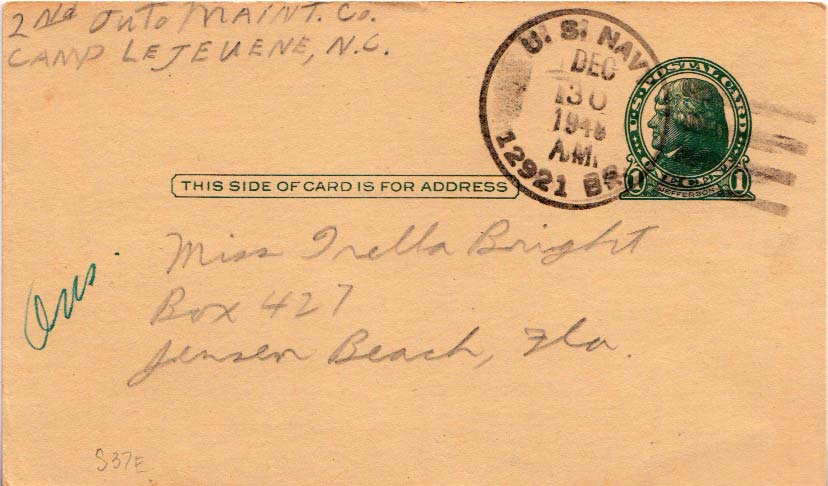 2nd Auto MAINT. Co.
CAMP LEJEUENE, N.C.
U. S. NAV
DEC
30
A.M.
12921 BR
U·S·POSTAL CARD
ONE CENT
1 JEFFERSON 1
THIS SIDE OF CARD IS FOR ADDRESS
Miss Trella Bright
Box 427
Jensen Beach, Fla.
Ans.
S37E